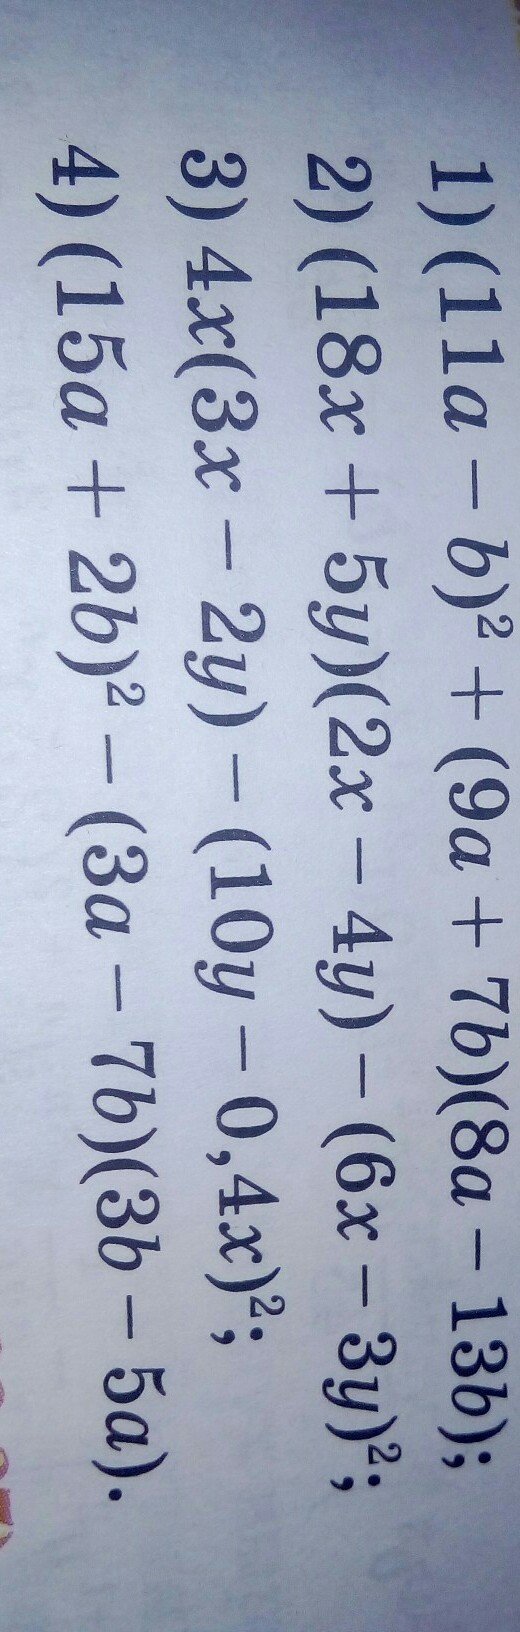 1) (11a − b)² + (9a + 7b)(8a − 13b);
2) (18x + 5y)(2x − 4y) − (6x − 3y)²;
3) 4x(3x − 2y) − (10y − 0,4x)²;
4) (15a + 2b)² − (3a − 7b)(3b − 5a).